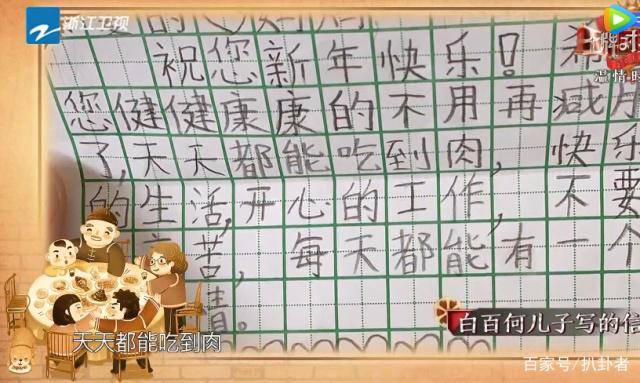 浙江卫视
祝您新年快乐！希
您健健康康的不用再减肥
了，天天都能吃到肉，快乐
的生活，开心的工作，不要
苦，每天都能有一个
情。
天天都能吃到肉
白百何儿子写的信
温情时
百家号/扒卦者